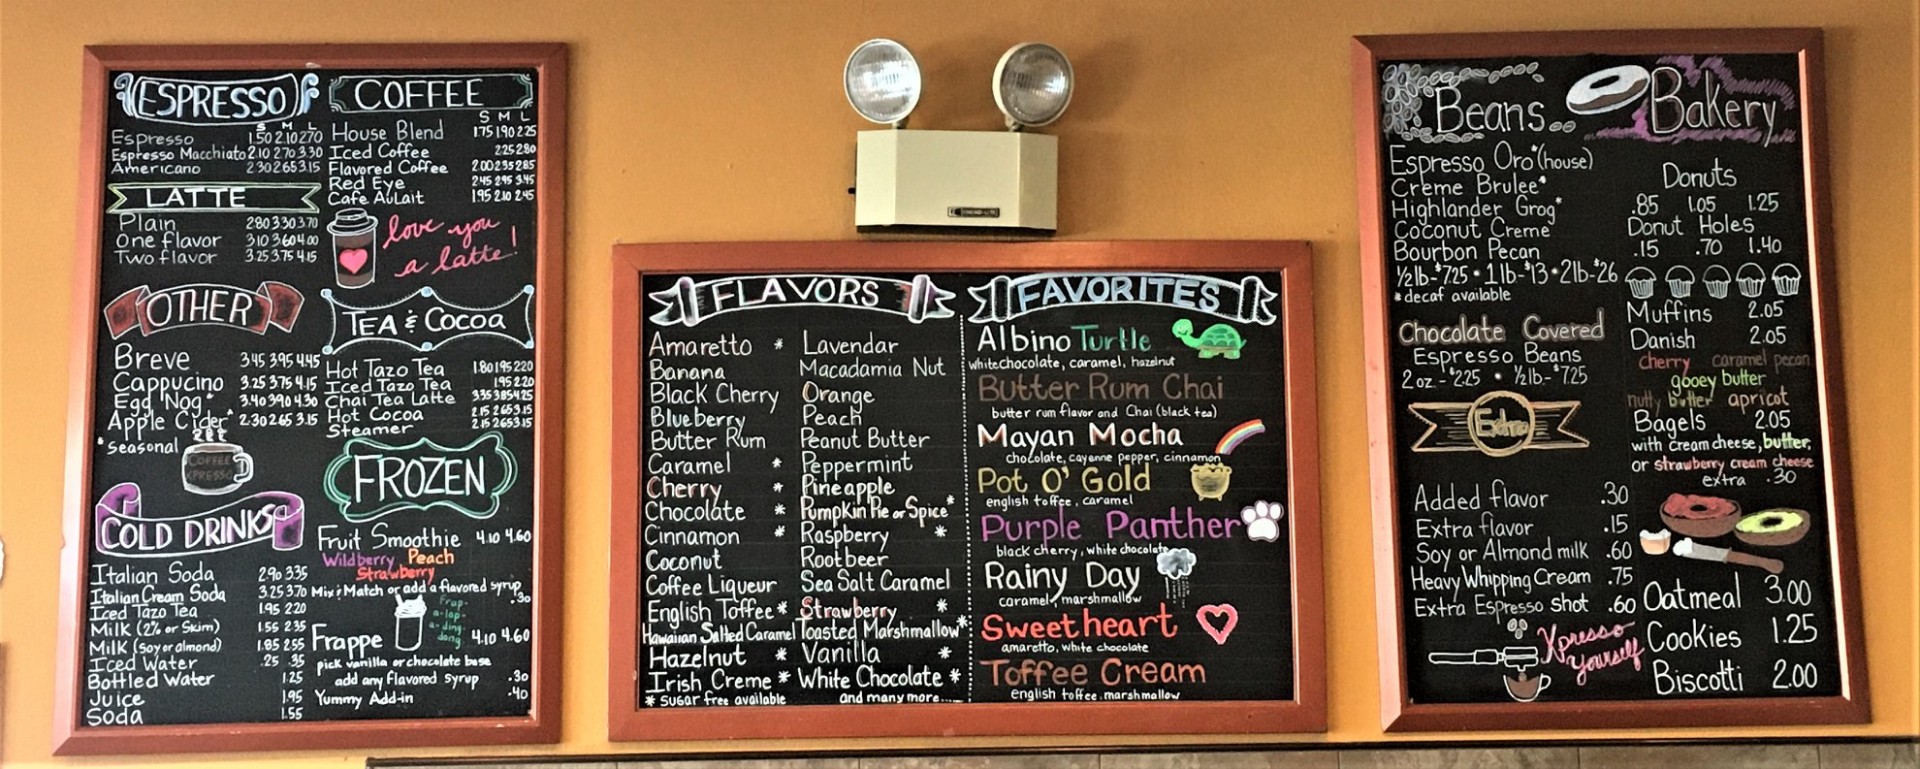 ESPRESSO
S M L
Espresso 1.50 2.10 2.70
Espresso Macchiato 2.10 2.70 3.30
Americano 2.30 2.65 3.15
LATTE
Plain 2.80 3.30 3.70
One flavor 3.10 3.60 4.00
Two flavor 3.25 3.75 4.15
OTHER
Breve 3.45 3.95 4.45
Cappucino 3.25 3.75 4.15
Egg Nog* 3.40 3.90 4.30
Apple Cider* 2.30 2.65 3.15
*seasonal
COFFEE
XPRESSO
COLD DRINKS
Italian Soda 2.90 3.35
Italian Cream Soda 3.25 3.70
Iced Tazo Tea 1.95 2.20
Milk (2% or Skim) 1.55 2.35
Milk (soy or almond) 1.85 2.55
Iced Water .25 .35
Bottled Water 1.25
Juice 1.95
Soda 1.55
COFFEE
S M L
House Blend 1.75 1.90 2.25
Iced Coffee 2.25 2.80
Flavored Coffee 2.00 2.35 2.85
Red Eye 2.45 2.95 3.45
Cafe AuLait 1.95 2.10 2.45
love you
a latte!
TEA & Cocoa
Hot Tazo Tea 1.80 1.95 2.20
Iced Tazo Tea 1.95 2.20
Chai Tea Latte 3.35 3.85 4.25
Hot Cocoa 2.15 2.65 3.15
Steamer 2.15 2.65 3.15
FROZEN
Fruit Smoothie 4.10 4.60
Wildberry Peach
Strawberry
Mix & Match or add a flavored syrup
.30
Frap-
a-lap-
a-ding
dong
Frappe 4.10 4.60
pick vanilla or chocolate base
add any flavored syrup .30
Yummy Add-in .40
FLAVORS
Amaretto *
Banana
Black Cherry
Blueberry
Butter Rum
Caramel *
Cherry *
Chocolate *
Cinnamon *
Coconut
Coffee Liqueur
English Toffee *
Hawaiian Salted Caramel
Hazelnut *
Irish Creme *
* sugar free available
Lavendar
Macadamia Nut
Orange
Peach
Peanut Butter
Peppermint
Pineapple
Pumpkin Pie or Spice *
Raspberry *
Rootbeer
Sea Salt Caramel
Strawberry *
Toasted Marshmallow *
Vanilla *
White Chocolate *
and many more....
FAVORITES
Albino Turtle
white chocolate, caramel, hazelnut
Butter Rum Chai
butter rum flavor and Chai (black tea)
Mayan Mocha
chocolate, cayenne pepper, cinnamon
Pot O' Gold
english toffee, caramel
Purple Panther
black cherry, white chocolate
Rainy Day
caramel, marshmallow
Sweetheart
amaretto, white chocolate
Toffee Cream
english toffee, marshmallow
Beans
Espresso Oro* (house)
Creme Brulee*
Highlander Grog*
Coconut Creme
Bourbon Pecan
½lb-$7.25 • 1lb-$13 • 2lb-$26
*decaf available
Chocolate Covered
Espresso Beans
2 oz.-$2.25 • ½lb-$7.25
Extra
Added flavor .30
Extra flavor .15
Soy or Almond milk .60
Heavy Whipping Cream .75
Extra Espresso shot .60
Xpresso
Yourself
Bakery
Donuts
.85 1.05 1.25
Donut Holes
.15 .70 1.40
Muffins 2.05
Danish 2.05
cherry caramel pecan
gooey butter
nutty butter apricot
Bagels 2.05
with cream cheese, butter,
or strawberry cream cheese
extra .30
Oatmeal 3.00
Cookies 1.25
Biscotti 2.00